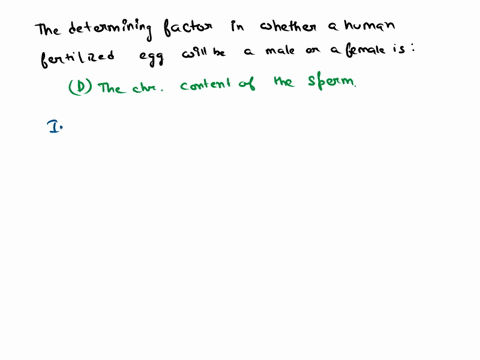 The determining factor in whether a human
fertilized egg will be a male or a female is:
(D) The chr. content of the sperm.
I.